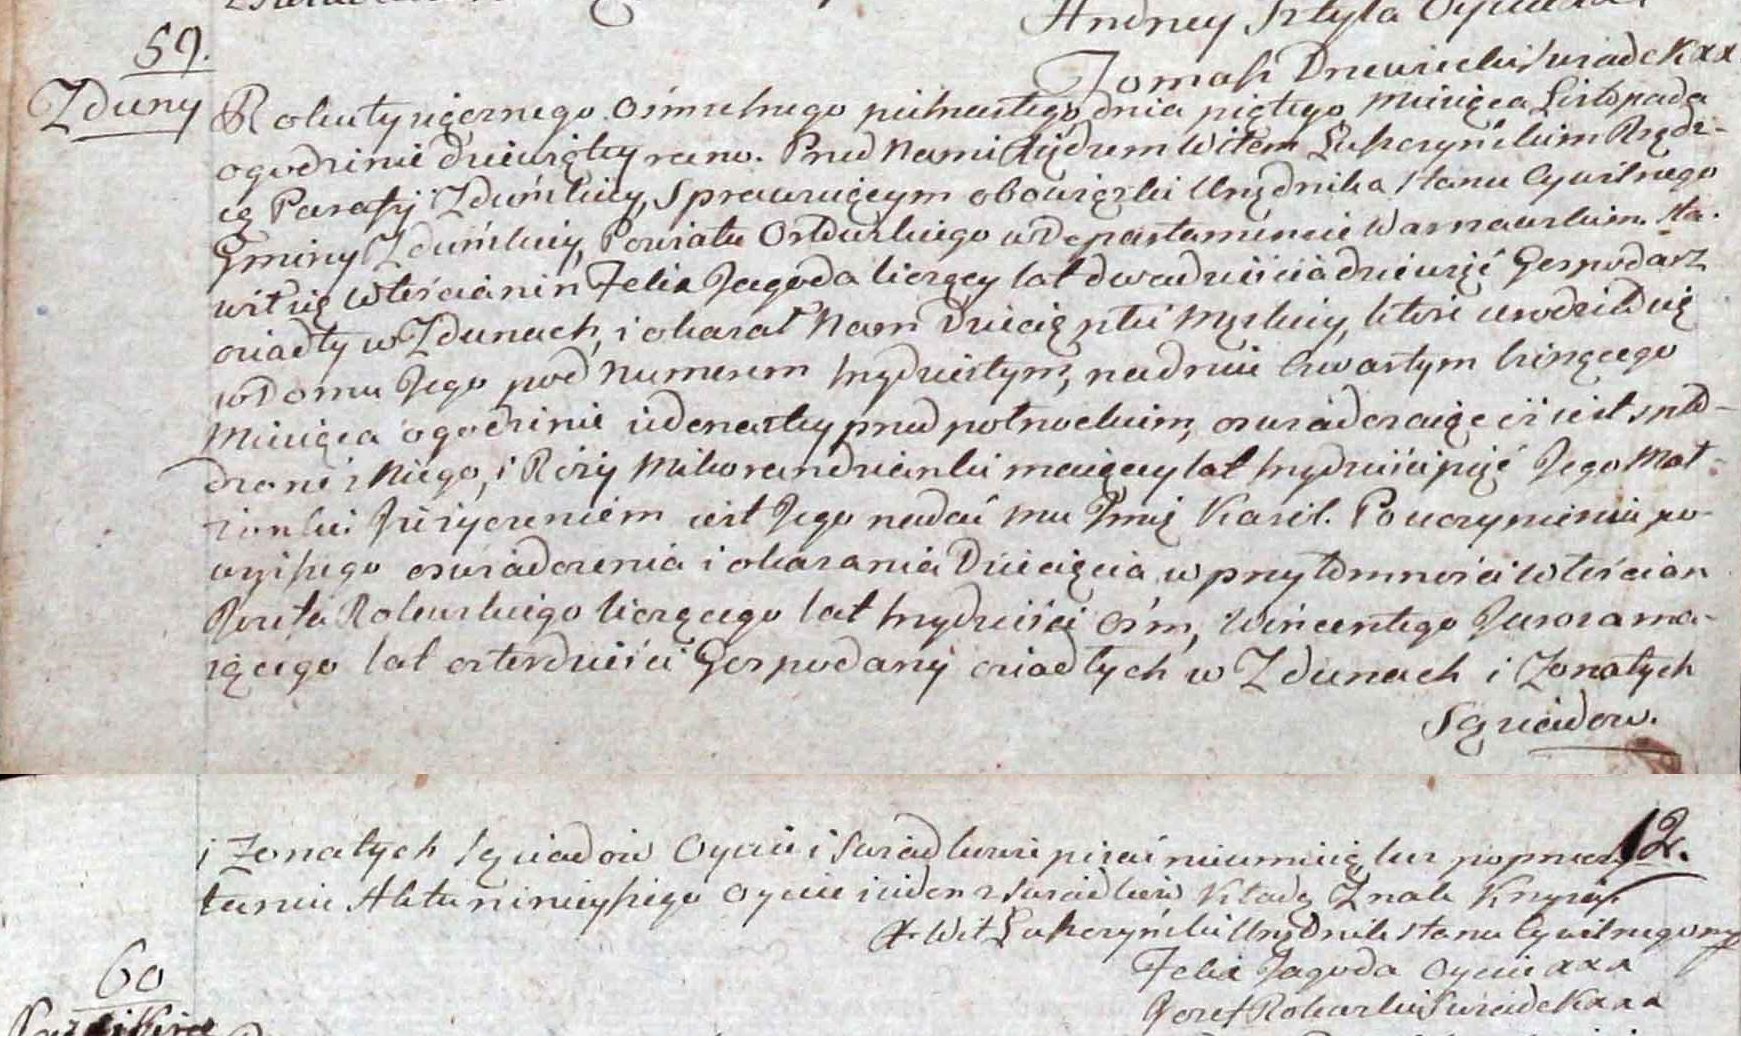 Andrey Sztyla Oyciec
Tomasz Drewiecki Swiadek xx
59.
Zduny
Roku tysiącznego ośmsetnego piętnastego, dnia piątego Miesiąca Listopada
o godzinie dziewiątey rano. Przed Nami Xiędzem Witem Rządz-
cą Parafij Zduńskiey, Sprawuiącym obowiązki Urzędnika stanu Cywilnego
Gminy Zduńskiey, Powiatu w Departamencie Warszawskim. Sta-
wił się Włościanin Felix Jagoda liczący lat dwadzieścia dziewięć Gospodarz
osiadły w Zdunach, i okazał Nam Dziecię płci Męskiey, które urodziło się
w Domu Jego pod Numerem trzydziestym, na dniu Czwartym bieżącego
Miesiąca o godzinie iedenastey przed północkiem, oswiadczaiąc iż iest spło-
dzone z Niego, i Róży maiącey lat trzydzieści pięć Jego Mał-
żonki. Że życzeniem iest Jego nadać mu Jmię Karol. Po uczynieniu po-
wyższego oswiadczenia i okazania Dziecięcia, w przytomności Włościan
Jozefa Rokurskiego liczącego lat trzydzieści ośm, Wincentego ma-
iącego lat czterdzieści Gospodarzy osiadłych w Zdunach i Żonatych
Sąsiadow.
12.
i Żonatych Sąsiadow Oyciec i Swiadkowie pisać nieumieią lecz po przeczy
taniu Aktu ninieyszego Oyciec i ieden z Swiadków Kładą Znak Krzyża
X. Wit Urzędnik stanu Cywilnego
Felix Jagoda Oyciec xxx
Jozef Rokurski Swiadek xxx
60